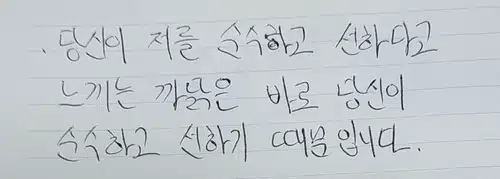 . 당신이 저를 순수하고 선하다고
느끼는 까닭은 바로 당신이
순수하고 선하기 때문입니다.